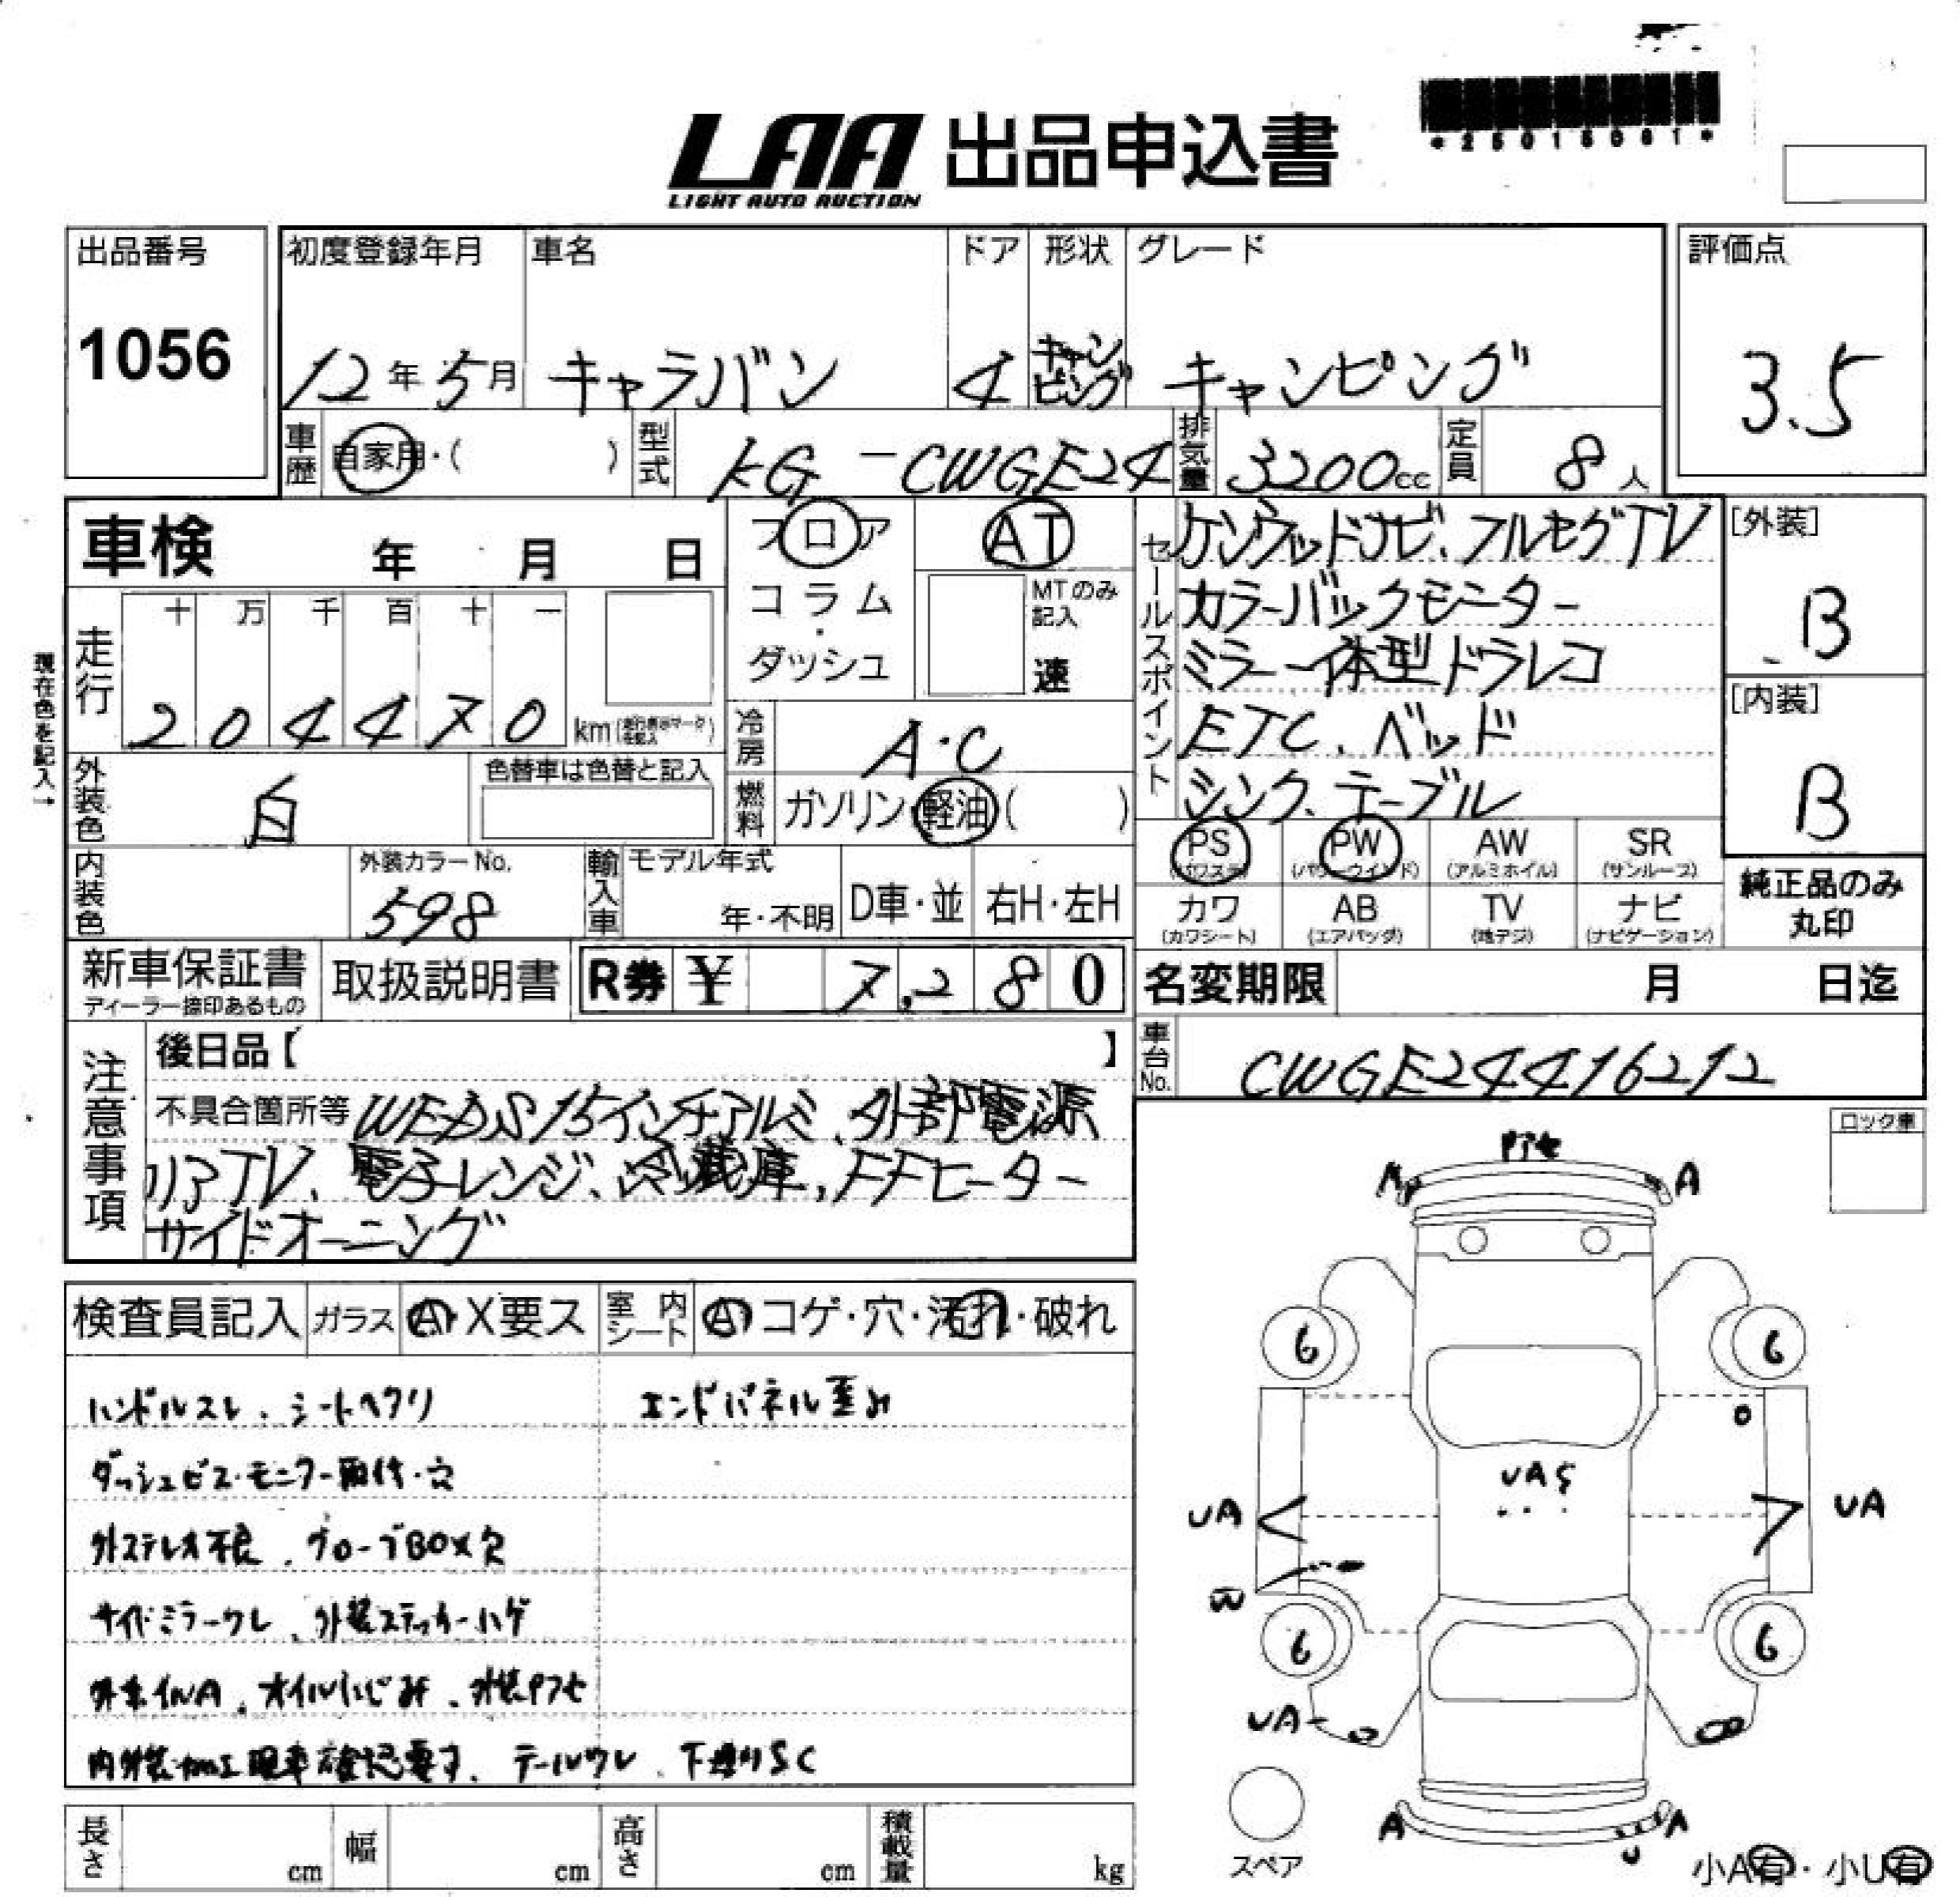 LAA 出品申込書
LIGHT AUTO AUCTION
*25015061*
出品番号
1056
初度登録年月
12年5月
車名
キャラバン
ドア
4
形状
キャンピング
グレード
キャンピング
評価点
3.5
車歴
自家用・( )
型式
KG-CWGE24
排気量
3200cc
定員
8人
車検 年 月 日
フロア
コラム・
ダッシュ
AT
MTのみ記入
速
セールスポイント
ケンウッドナビ、フルセグTV
カラーバックモニター
ミラー一体型ドラレコ
ETC、ベッド
シンク、テーブル
[外装]
B
[内装]
B
現在色を記入→
走行
十 万 千 百 十 一
2 0 4 4 7 0 km
冷房
A・C
外装色
白
色替車は色替と記入
燃料
ガソリン・軽油( )
PS PW AW SR
(パワステ) (パワーウインド) (アルミホイル) (サンルーフ)
カワ AB TV ナビ
(カワシート) (エアバッグ) (地デジ) (ナビゲーション)
純正品のみ
丸印
内装色
外装カラーNo.
598
輸入車
モデル年式
年・不明
D車・並
右H・左H
新車保証書
ディーラー捺印あるもの
取扱説明書
R券 ¥ 7,280
名変期限 月 日迄
車台No.
CWGE24416212
注意事項
後日品【 】
不具合箇所等 WEDS15インチアルミ、外部電源
リアTV、電子レンジ、冷蔵庫、FFヒーター
サイドオーニング
ロック車
検査員記入
ガラス
A・X要ス
室内シート
A コゲ・穴・汚れ・破れ
ハンドルスレ、シートヘタリ
エンドパネル歪み
ダッシュビス・モニター取付・穴
外ステレオ不良、グローブBOX欠
サイドミラーワレ、外装ステッカーハゲ
オイルにじみ、外装タアセ
内外装加工現車確認要す、テールワレ、下廻りSC
A
A
6
6
UAS
UA
UA
W
6
6
UA
A
A
U
スペア
小A有・小U有
長さ cm
幅 cm
高さ cm
積載量 kg